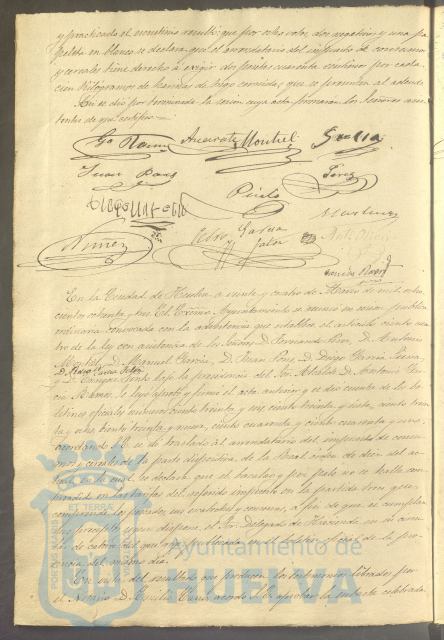 y practicado el escrutinio resultó: que por ocho votos, dos negativos y una pa-
peleta en blanco se declara que el arrendatario del impuesto de consumos
y cereales tiene derecho a exigir dos pesetas cuarenta céntimos por cada
cien kilógramos de harinas de trigo cernida, que se presenten al adeudo.
Así se dió por terminada la sesión cuya acta firmarán los Señores asis-
tentes de que certifico.
Gª Ramos Azcarate Montiel García
Juan Ponz Pérez
Pinto Martinez
Nuñez Pedro García Jalón
En la Ciudad de Huelva a veinte y cuatro de de mil ocho-
cientos ochenta y tres. El Excmo. Ayuntamiento se reunió en sesión pública
ordinaria convocada con la advertencia que establece el artículo ciento cua-
tro de la ley con asistencia de los Señores D. Fernando D. Antonio
Montiel, D. Manuel García, D. Juan Ponz, D. Diego García
D. Pedro García Jalón
y D. Pinto bajo la presidencia del Sr. Alcalde D. Antonio Gar-
cía Ramos. Se leyó aprobó y firmó el acta anterior y se dió cuenta de los bo-
letines oficiales números ciento treinta y seis, ciento treinta y siete, ciento trein-
ta y ocho, ciento treinta y nueve, ciento cuarenta y ciento cuarenta y uno,
acordando S.E. se dé traslado al arrendatario del impuesto de consu-
mos y cereales de la parte dispositiva de la Real orden de diez del ac-
tual, en la cual se declara que el bacalao y pez palo no se halla com-
prendido en las tarifas del referido impuesto en la partida trece que
comprende los pescados, sus escabeches y conservas, a fin de que se cumpla
su precepto según dispone el Sr. Delegado de Hacienda en su circu-
lar de catorce del que rige publicada en el boletín oficial de la pro-
vincia del mismo día.
En vista del resultado que producen los testimonios librados por
el Notario D. Emilio Cano, acordó S.E. aprobar la subasta celebrada
PORTUS MARIS
EL TERRAE
Ayuntamiento de
HUELVA